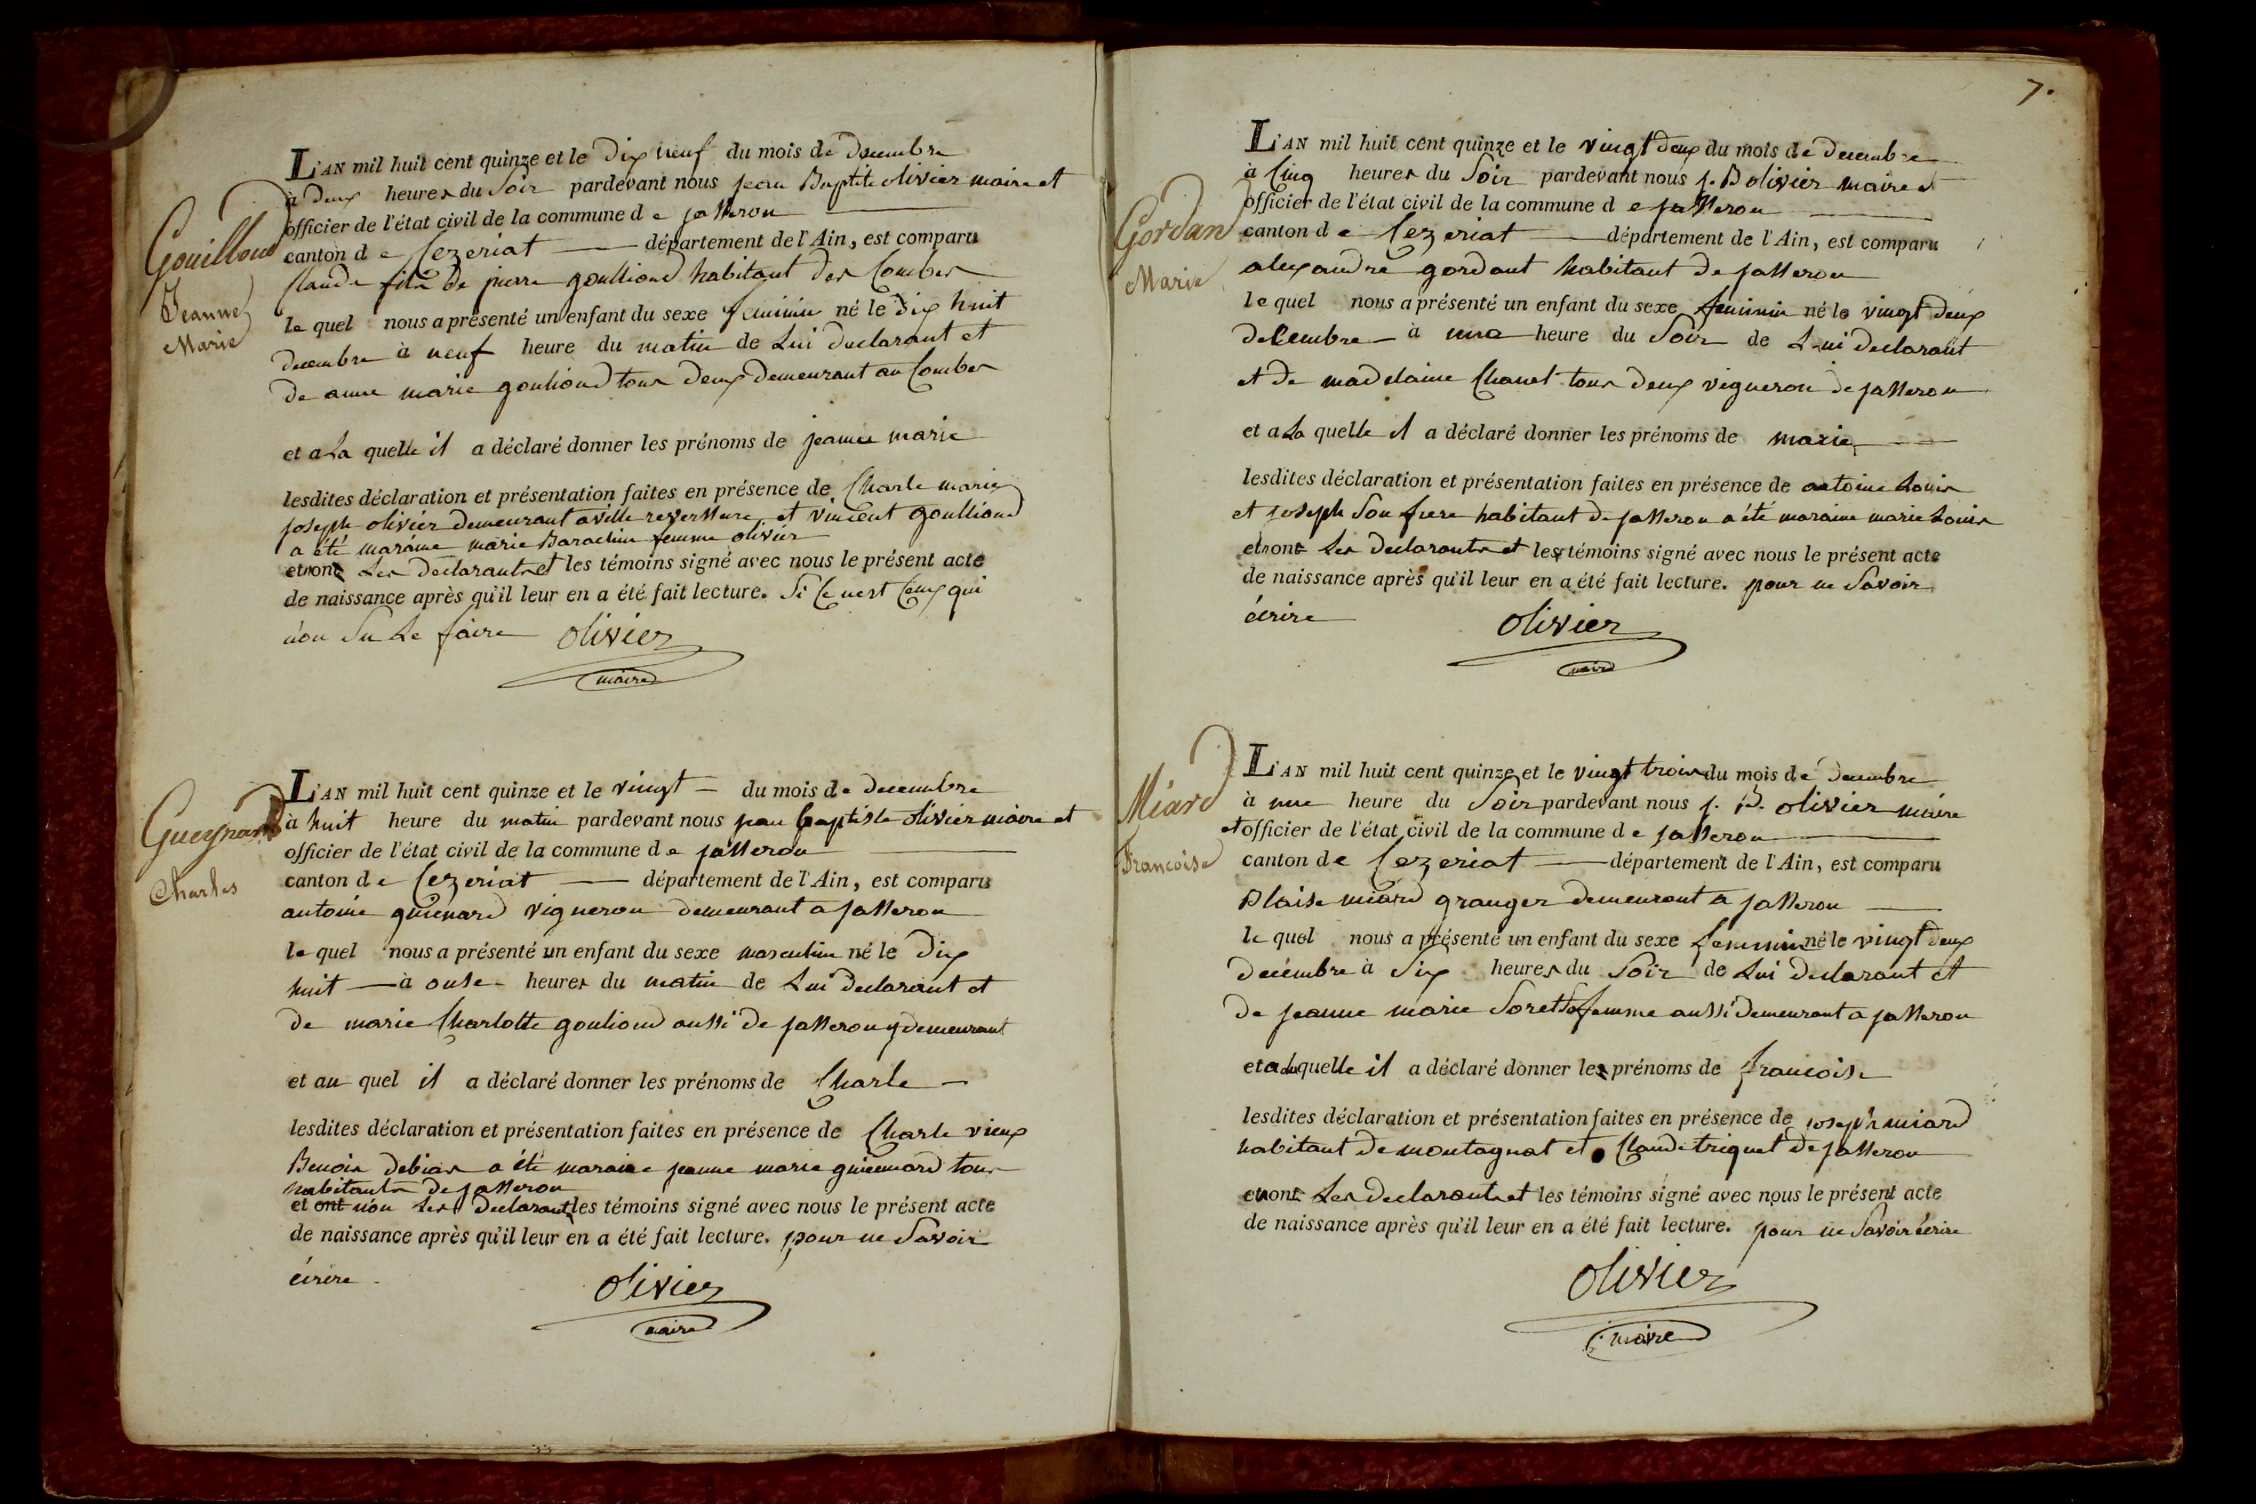 L'AN mil huit cent quinze et le Dix neuf du mois de decembre
à Deux heures du Soir pardevant nous jean Baptiste olivier maire et
officier de l'état civil de la commune de jasseron
canton de Cezeriat département de l'Ain, est comparu
Claude fils de pierre goulliond habitant des Combes
le quel nous a présenté un enfant du sexe feminin né le dix huit
decembre à neuf heure du matin de Lui declarant et
de anne marie gouliond tous deux demeurant au Combes
et a La quelle il a déclaré donner les prénoms de jeanne marie
lesdites déclaration et présentation faites en présence de Charle marie
joseph olivier demeurant a villereversure et vincent goulliond
a été maraine marie Barachin femme olivier
et ont Les declarants et les témoins signé avec nous le présent acte
de naissance après qu'il leur en a été fait lecture. Si Ce nest Ceux qui
non Su Le faire olivier
maire
Gouilloud
Jeanne
Marie
L'AN mil huit cent quinze et le vingt du mois de decembre
à huit heure du matin pardevant nous jean baptiste olivier maire et
officier de l'état civil de la commune de jasseron
canton de Cezeriat département de l'Ain, est comparu
antoine guienard vigneron demeurant a jasseron
le quel nous a présenté un enfant du sexe masculin né le Dix
huit à onse heures du matin de Lui declarant et
de marie Charlotte gouliond aussi de jasseron y demeurant
et au quel il a déclaré donner les prénoms de Charle
lesdites déclaration et présentation faites en présence de Charle vieux
Benois debias a été maraine jeanne marie guienard tous
habitants de jasseron
et ont non Les declarant les témoins signé avec nous le présent acte
de naissance après qu'il leur en a été fait lecture. pour ne Savoir
écrire
olivier
maire
Gueynard
Charles
7.
L'AN mil huit cent quinze et le vingt deux du mois de decembre
à Cinq heures du Soir pardevant nous j. B olivier maire et
officier de l'état civil de la commune de jasseron
canton de Cezeriat département de l'Ain, est comparu
alexandre gordant habitant de jasseron
le quel nous a présenté un enfant du sexe feminin né le vingt deux
decembre à une heure du Soir de Lui declarant
et de madelaine Chanel tous deux vigneron de jasseron
et a La quelle il a déclaré donner les prénoms de marie
lesdites déclaration et présentation faites en présence de antoine Louis
et joseph Son frere habitant de jasseron a été maraine marie Louis
et non Les declarants et les témoins signé avec nous le présent acte
de naissance après qu'il leur en a été fait lecture. pour ne Savoir
écrire
olivier
maire
Gordan
Marie
L'AN mil huit cent quinze et le vingt trois du mois de decembre
à une heure du Soir pardevant nous j. B. olivier maire
et officier de l'état civil de la commune de jasseron
canton de Cezeriat département de l'Ain, est comparu
Blaise miard granger demeurant a jasseron
le quel nous a présenté un enfant du sexe feminin né le vingt deux
decembre à Six heures du Soir de Lui declarant et
de jeanne marie Soret Sa femme aussi demeurant a jasseron
et a la quelle il a déclaré donner les prénoms de francoise
lesdites déclaration et présentation faites en présence de joseph miard
habitant de montagnat et Claude triquet de jasseron
et non Les declarants et les témoins signé avec nous le présent acte
de naissance après qu'il leur en a été fait lecture. pour ne Savoir écrire
olivier
maire
Miard
Francoise